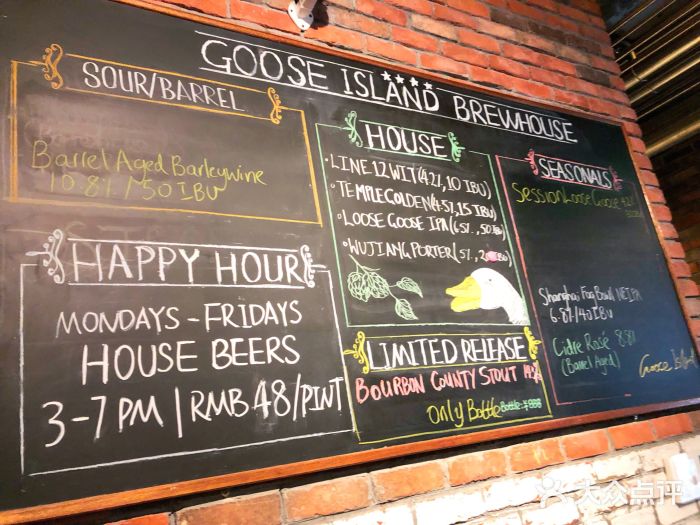 GOOSE ISLAND BREWHOUSE
SOUR/BARREL
Barrel Aged Barleywine
10.8%/50 IBU
HAPPY HOUR
MONDAYS - FRIDAYS
HOUSE BEERS
3-7 PM | RMB 48/PINT
HOUSE
• LINE 12 WIT (4.2%, 10 IBU)
• TEMPLE GOLDEN (4.5%, 15 IBU)
• LOOSE GOOSE IPA (6%, 50 IBU)
• WUJIANG PORTER (5%, IBU)
LIMITED RELEASE
BOURBON COUNTY STOUT
Only Bottle Bottle: ¥888
SEASONALS
Session Loose Goose
Shanghai Fog Bowl NEIPA
6.8%/40 IBU
Cidre Rosé 8.8%
(Barrel Aged)
Goose Island
大众点评